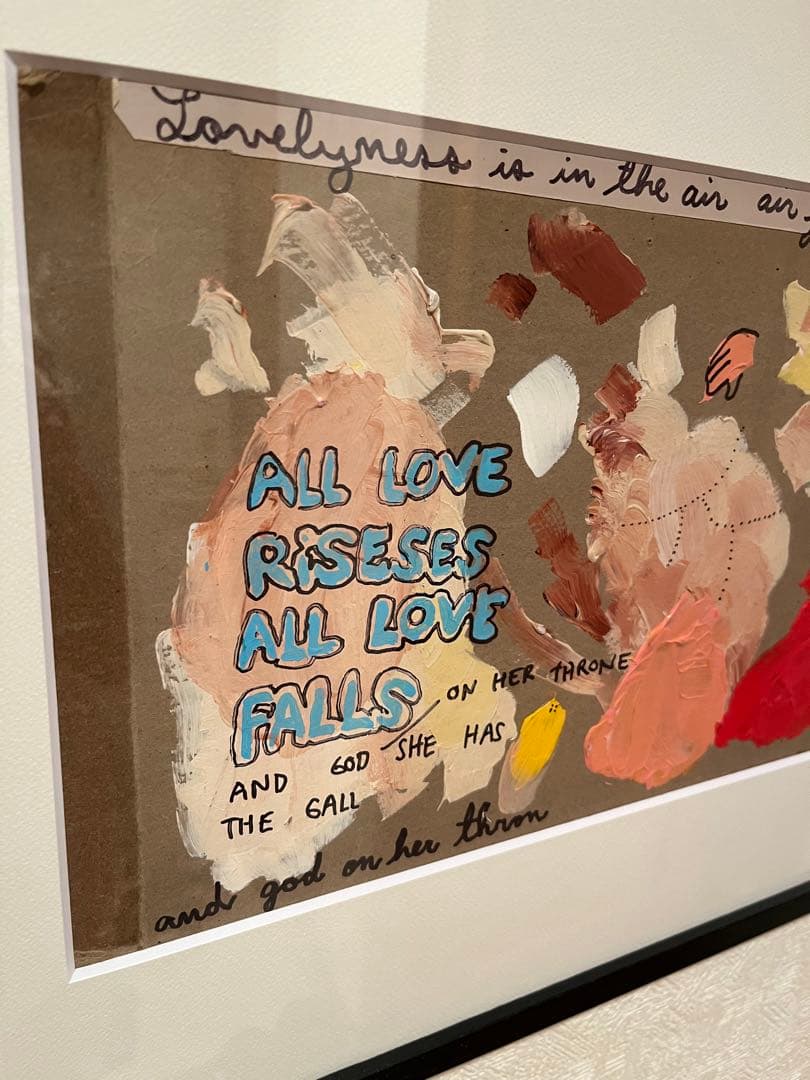 Lovelyness is in the air air
ALL LOVE
RISESES
ALL LOVE
FALLS
ON HER THRONE
AND GOD SHE HAS
THE GALL
and god on her thron